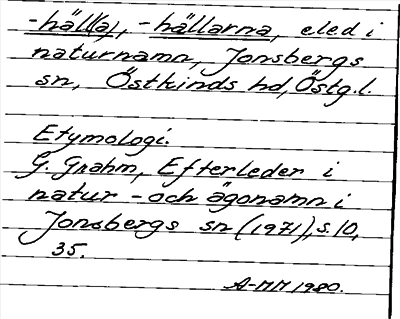 -häll(a), -hällarna, eled i
naturnamn, Jonsbergs
sn, Östkinds hd, Östg.l.
Etymologi.
G. Grahm, Efterleder i
natur- och ägonamn i
Jonsbergs sn (1971), s. 10,
35.
A-MM 1980.